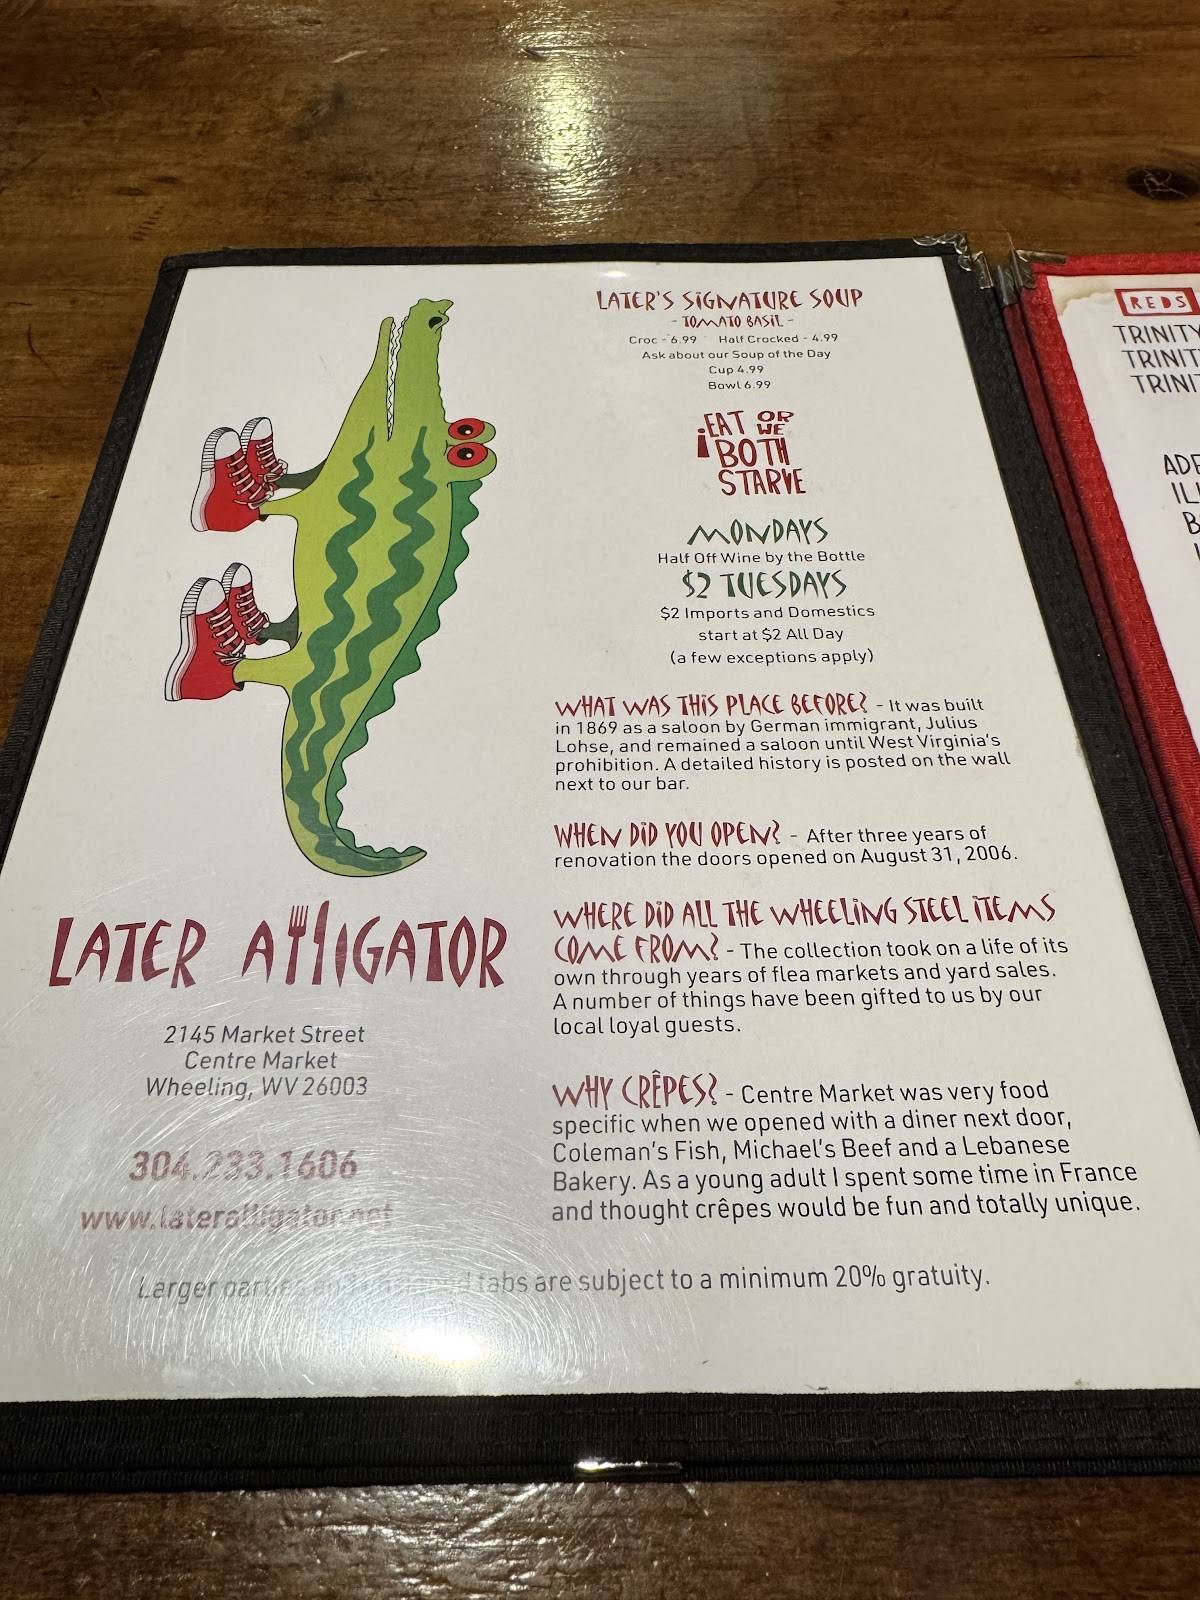 LATER'S SIGNATURE SOUP
- TOMATO BASIL -
Croc - 6.99 Half Crocked - 4.99
Ask about our Soup of the Day
Cup 4.99
Bowl 6.99
¡EAT OR WE
BOTH
STARVE
MONDAYS
Half Off Wine by the Bottle
$2 TUESDAYS
$2 Imports and Domestics
start at $2 All Day
(a few exceptions apply)
WHAT WAS THIS PLACE BEFORE? - It was built
in 1869 as a saloon by German immigrant, Julius
Lohse, and remained a saloon until West Virginia's
prohibition. A detailed history is posted on the wall
next to our bar.
WHEN DID YOU OPEN? - After three years of
renovation the doors opened on August 31, 2006.
WHERE DID ALL THE WHEELING STEEL ITEMS
COME FROM? - The collection took on a life of its
own through years of flea markets and yard sales.
A number of things have been gifted to us by our
local loyal guests.
WHY CRÊPES? - Centre Market was very food
specific when we opened with a diner next door,
Coleman's Fish, Michael's Beef and a Lebanese
Bakery. As a young adult I spent some time in France
and thought crêpes would be fun and totally unique.
LATER ALLIGATOR
2145 Market Street
Centre Market
Wheeling, WV 26003
304.233.1606
www.lateralligator.net
Larger parties and tabs are subject to a minimum 20% gratuity.
REDS
TRINITY